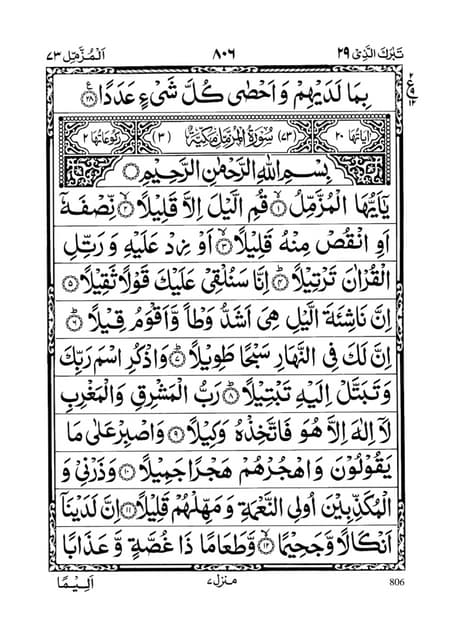 تبٰرك الذي ٢٩ ٨٠٦ المزمل ٧٣
بِمَا لَدَيْهِمْ وَاَحْصٰى كُلَّ شَىْءٍ عَدَدًا ﴿٢٨﴾ ع
٢
ع
١٢
اٰيَاتُهَا ٢٠ (٧٣) سُوْرَةُ الْمُزَّمِّلِ مَكِّيَّةٌ (٣) رُكُوْعَاتُهَا ٢
بِسْمِ اللهِ الرَّحْمٰنِ الرَّحِيْمِ
يٰۤاَيُّهَا الْمُزَّمِّلُ ﴿١﴾ قُمِ الَّيْلَ اِلَّا قَلِيْلًا ﴿٢﴾ نِّصْفَهٗۤ
اَوِ انْقُصْ مِنْهُ قَلِيْلًا ﴿٣﴾ اَوْ زِدْ عَلَيْهِ وَ رَتِّلِ
الْقُرْاٰنَ تَرْتِيْلًا ﴿٤﴾ اِنَّا سَنُلْقِىْ عَلَيْكَ قَوْلًا ثَقِيْلًا ﴿٥﴾
اِنَّ نَاشِئَةَ الَّيْلِ هِىَ اَشَدُّ وَطْاً وَّاَقْوَمُ قِيْلًا ﴿٦﴾
اِنَّ لَكَ فِى النَّهَارِ سَبْحًا طَوِيْلًا ﴿٧﴾ وَاذْكُرِ اسْمَ رَبِّكَ
وَتَبَتَّلْ اِلَيْهِ تَبْتِيْلًا ﴿٨﴾ رَبُّ الْمَشْرِقِ وَالْمَغْرِبِ
لَاۤ اِلٰهَ اِلَّا هُوَ فَاتَّخِذْهُ وَكِيْلًا ﴿٩﴾ وَاصْبِرْ عَلٰى مَا
يَقُوْلُوْنَ وَاهْجُرْهُمْ هَجْرًا جَمِيْلًا ﴿١٠﴾ وَذَرْنِىْ وَ
الْمُكَذِّبِيْنَ اُولِى النَّعْمَةِ وَ مَهِّلْهُمْ قَلِيْلًا ﴿١١﴾ اِنَّ لَدَيْنَاۤ
اَنْكَالًا وَّجَحِيْمًا ﴿١٢﴾ وَّطَعَامًا ذَا غُصَّةٍ وَّ عَذَابًا
اَلِيْمًا منزل ٧ 806